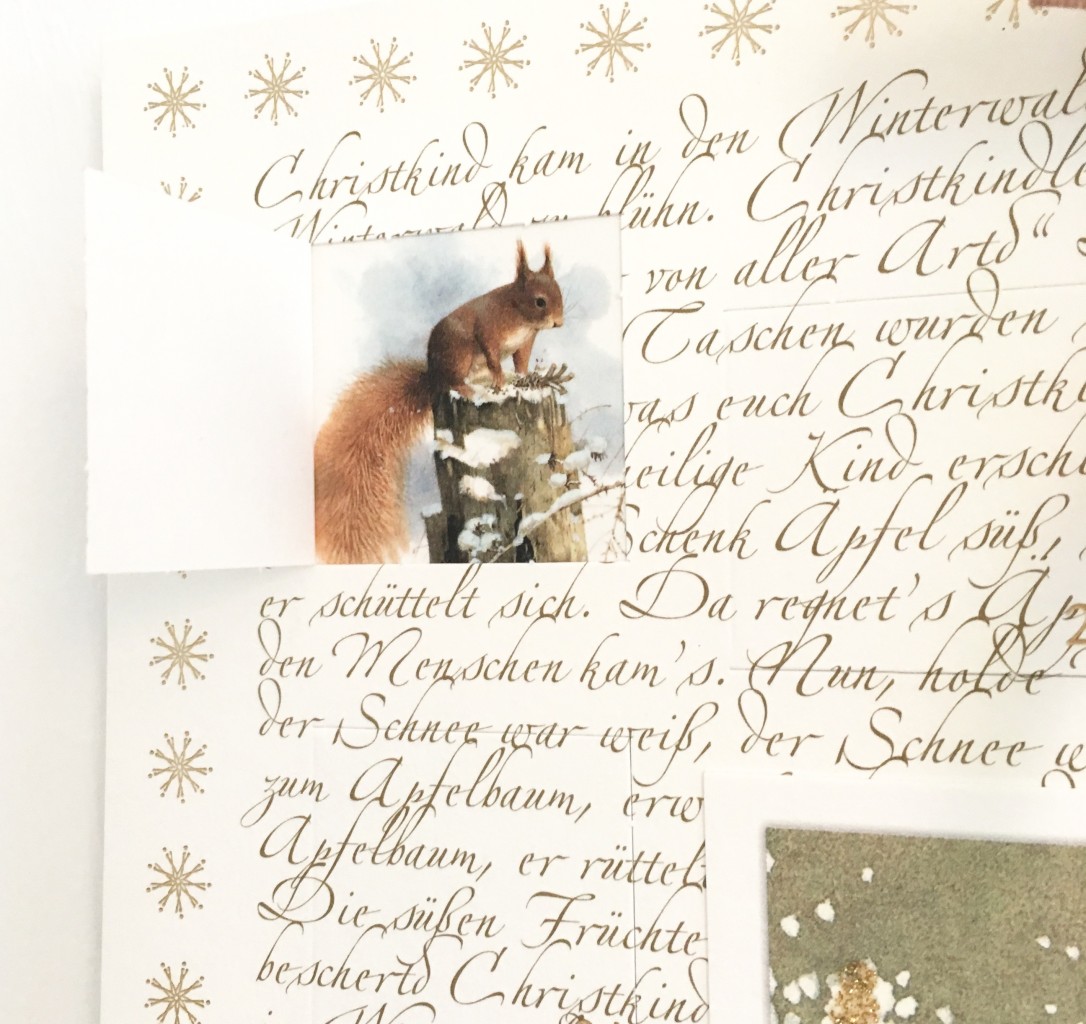 Christkind kam in den Winterwald
Winterwald blühn. Christkindle
von aller Artd“
Taschen wurden
was euch Christk
heilige Kind ersch
Schenk Äpfel süß,
er schüttelt sich. Da regnet's Äp
den Menschen kam's. Nun, holde
der Schnee war weiß, der Schnee w
zum Apfelbaum, erw
Apfelbaum, er rüttelt
Die süßen Früchte
beschertd Christkind